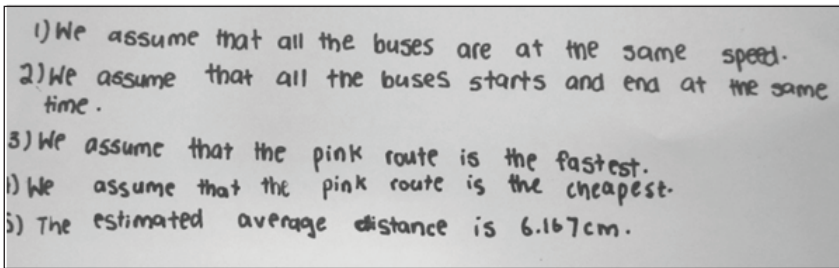 1) We assume that all the buses are at the same speed.
2) We assume that all the buses starts and end at the same
time.
3) We assume that the pink route is the fastest.
) We assume that the pink route is the cheapest.
5) The estimated average distance is 6.167cm.